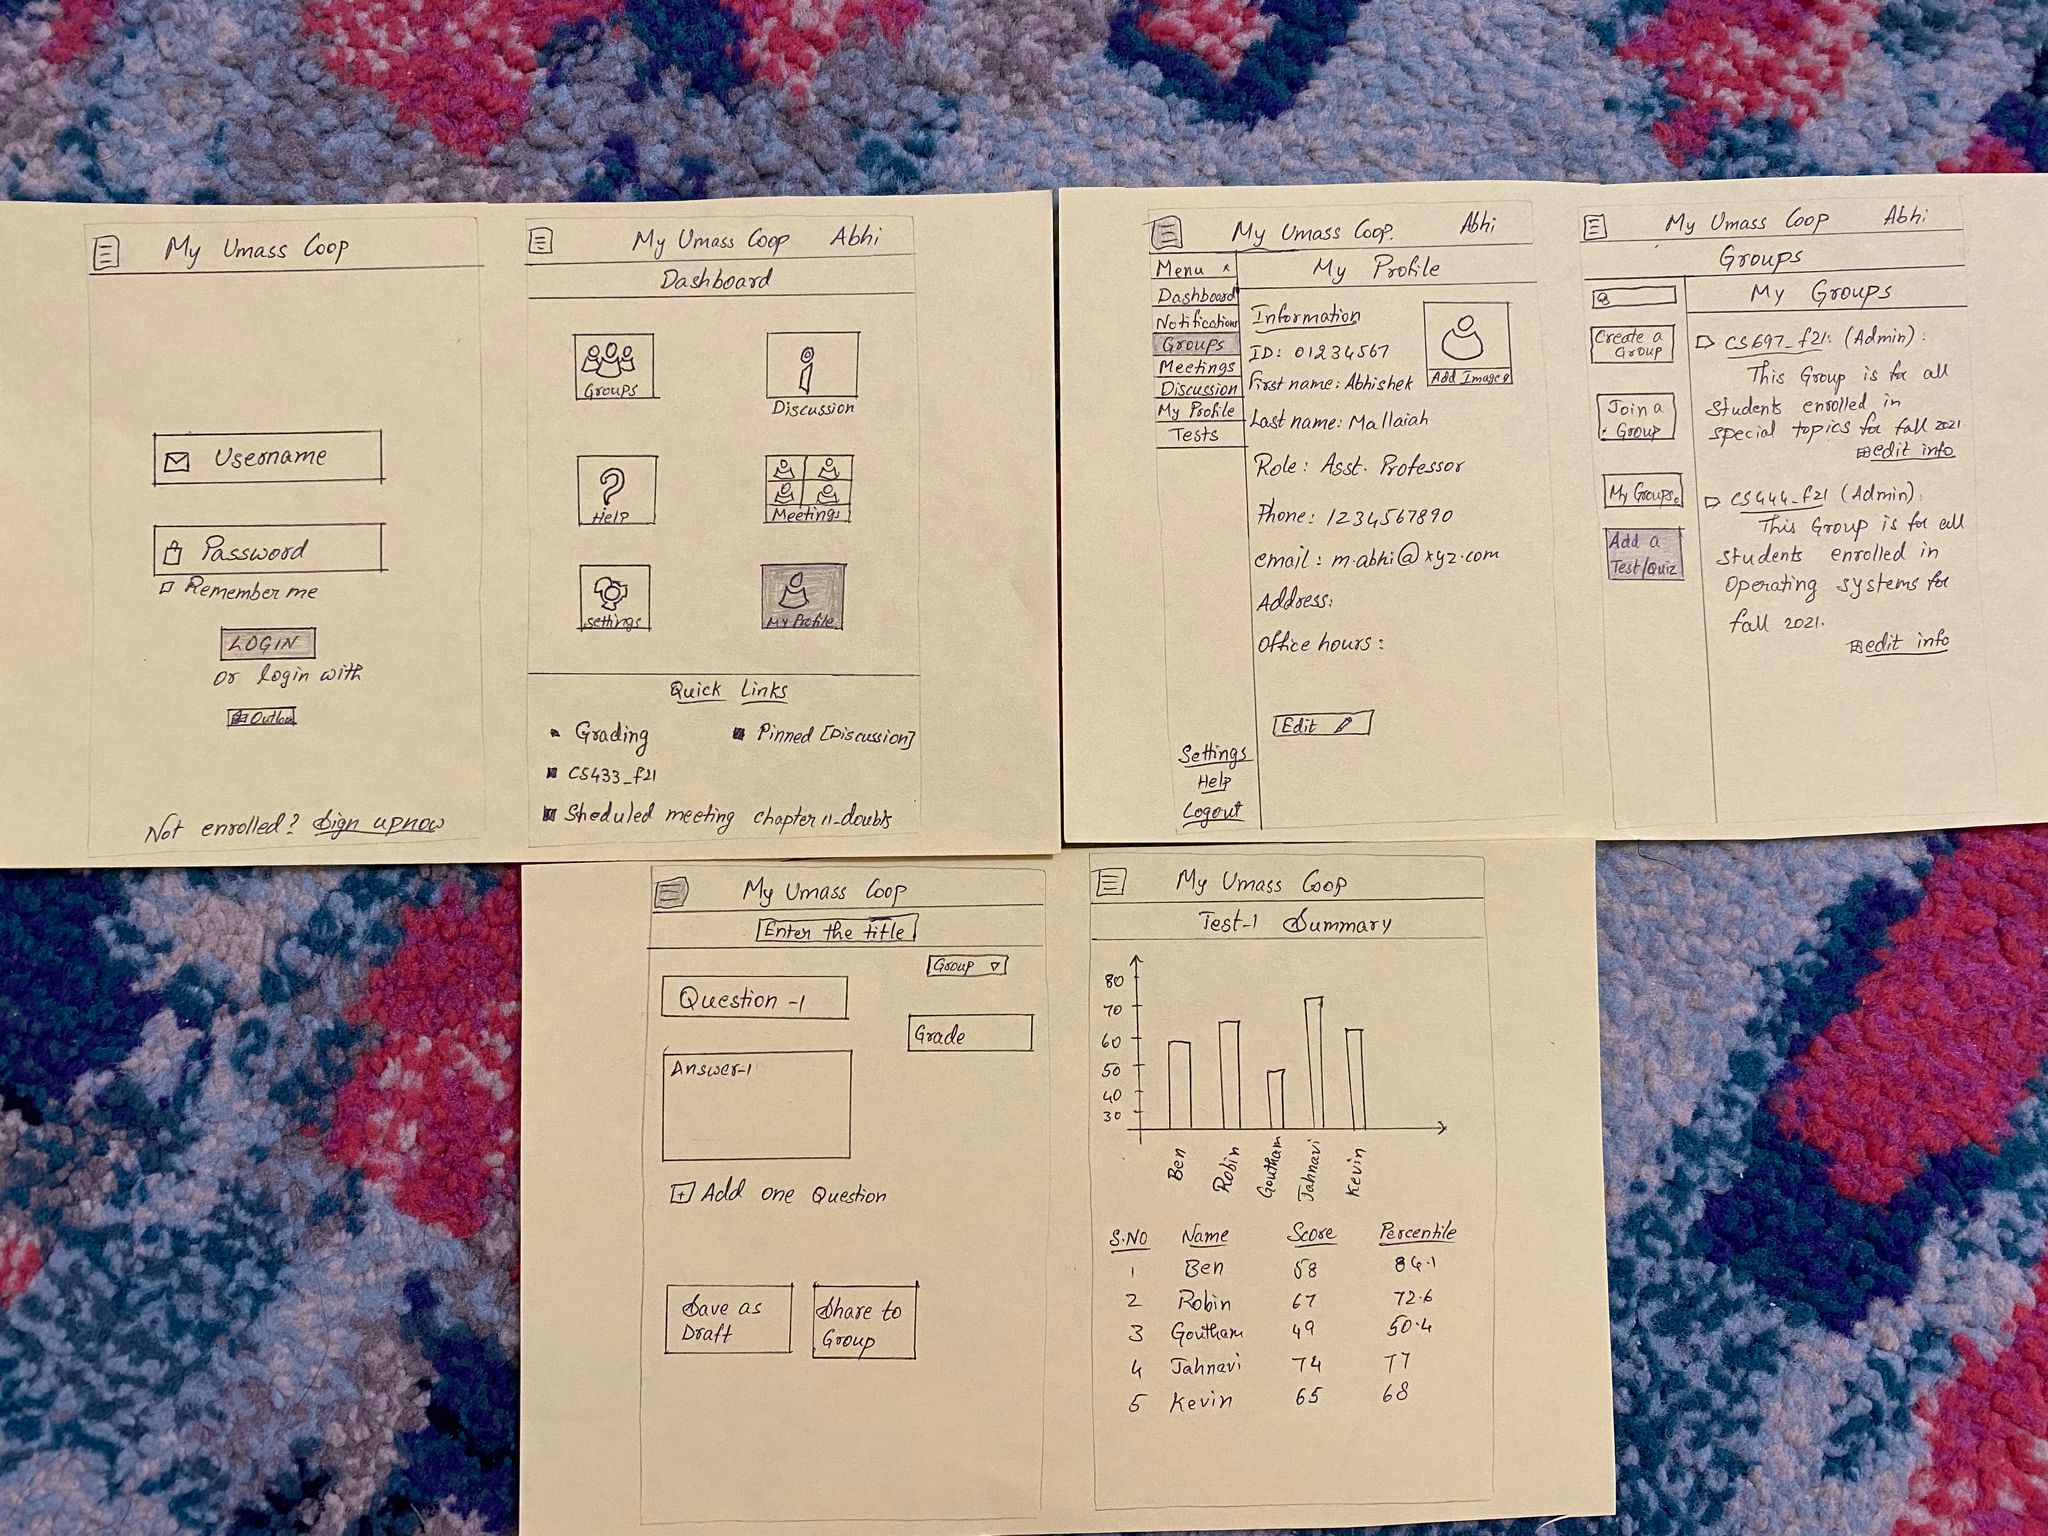 My Umass Coop
Username
Password
Remember me
LOGIN
Or login with
Not enrolled? Sign up now
My Umass Coop Abhi
Dashboard
Groups
Discussion
Help
Meetings
Settings
My Profile
Quick Links
Grading
Pinned [Discussion]
CS433_f21
Sheduled meeting chapter 11-doubts
My Umass Coop. Abhi
Menu ^
Dashboard
Notifications
Groups
Meetings
Discussion
My Profile
Tests
Settings
Help
Logout
My Profile
Information
ID: 01234567
First name: Abhishek
Last name: Mallaiah
Role: Asst. Professor
Phone: 1234567890
email: m.abhi@xyz.com
Address:
Office hours:
Add Image
Edit
My Umass Coop Abhi
Groups
Create a
Group
Join a
Group
My Groups
Add a
Test/Quiz
My Groups
CS697_f21: (Admin):
This Group is for all
students enrolled in
special topics for fall 2021.
edit info
CS444_f21 (Admin):
This Group is for all
students enrolled in
Operating systems for
fall 2021.
edit info
My Umass Coop
Enter the title
Group
Question -1
Grade
Answer-1
+ Add one Question
Save as
Draft
Share to
Group
My Umass Coop
Test-1 Summary
80
70
60
50
40
30
Ben
Robin
Goutham
Jahnavi
Kevin
S.NO Name Score Percentile
1 Ben 58
2 Robin 67 72.6
3 Goutham 49 50.4
4 Jahnavi 74 77
5 Kevin 65 68